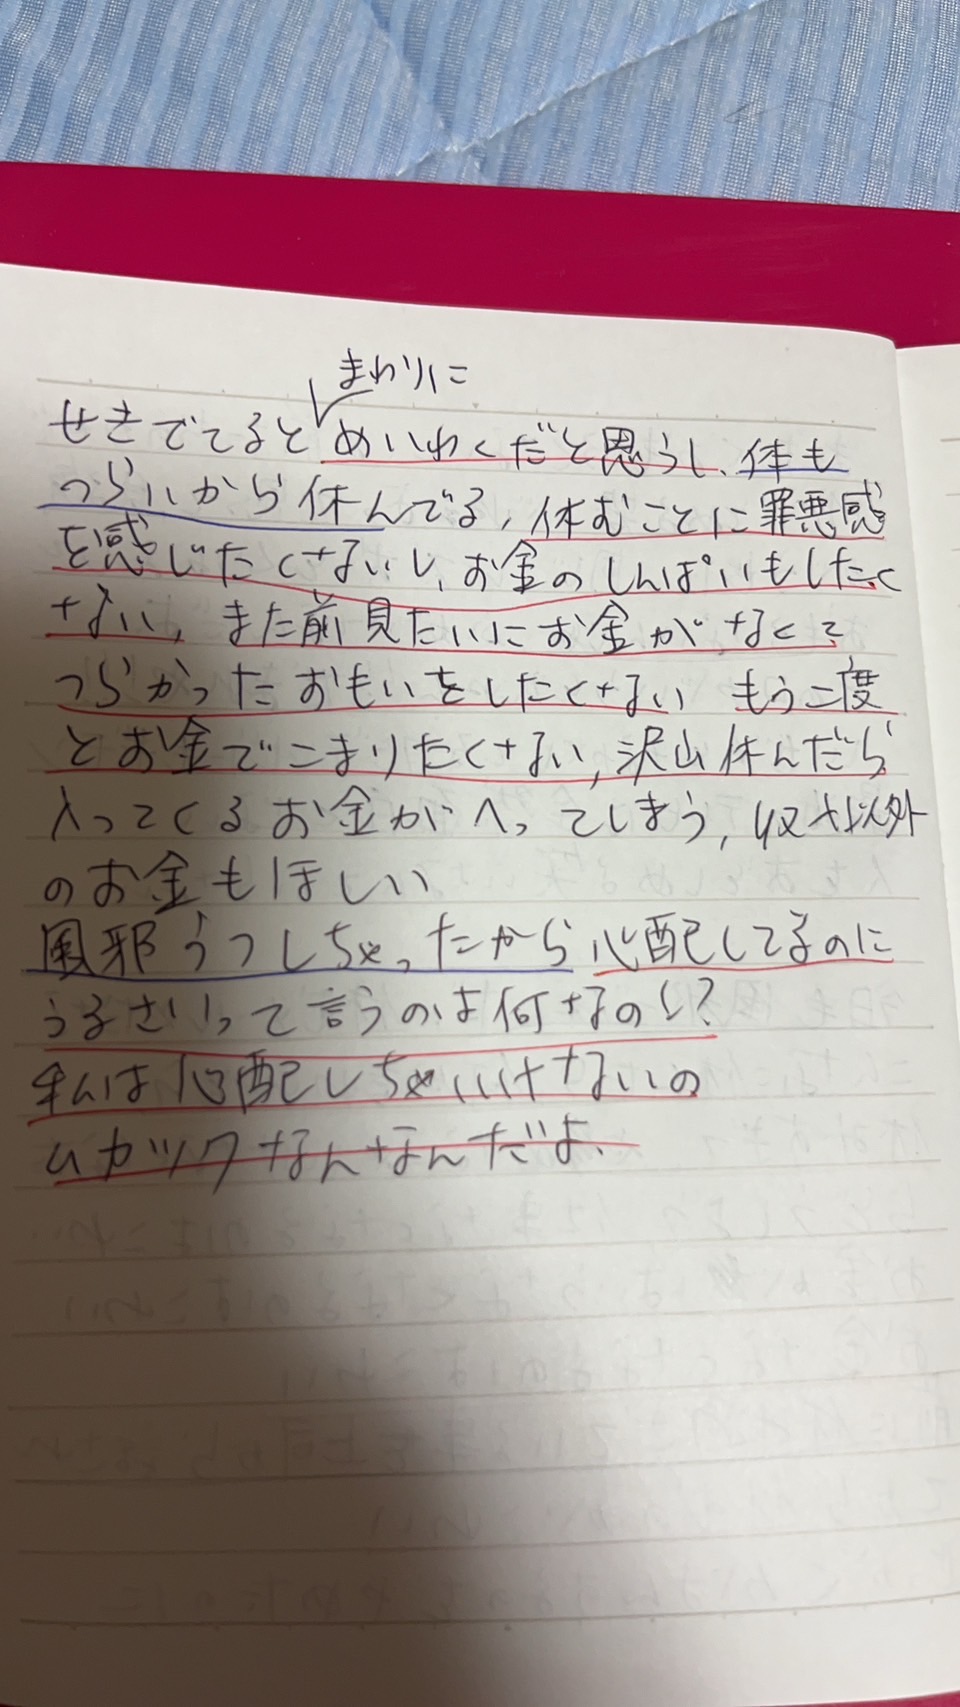 まわりに
せきでてるとめいわくだと思うし、体も
つらいから休んでる，休むことに罪悪感
を感じたくないし、お金のしんぱいもしたく
ない，また前見たいにお金がなくて
つらかったおもいをしたくない もう二度
とお金でこまりたくない，沢山休んだら
入ってくるお金がへってしまう，収入以外
のお金もほしい
風邪うつしちゃったから心配してるのに
うるさいって言うのは何なの!?
私は心配しちゃいけないの
ムカツクなんなんだよ、